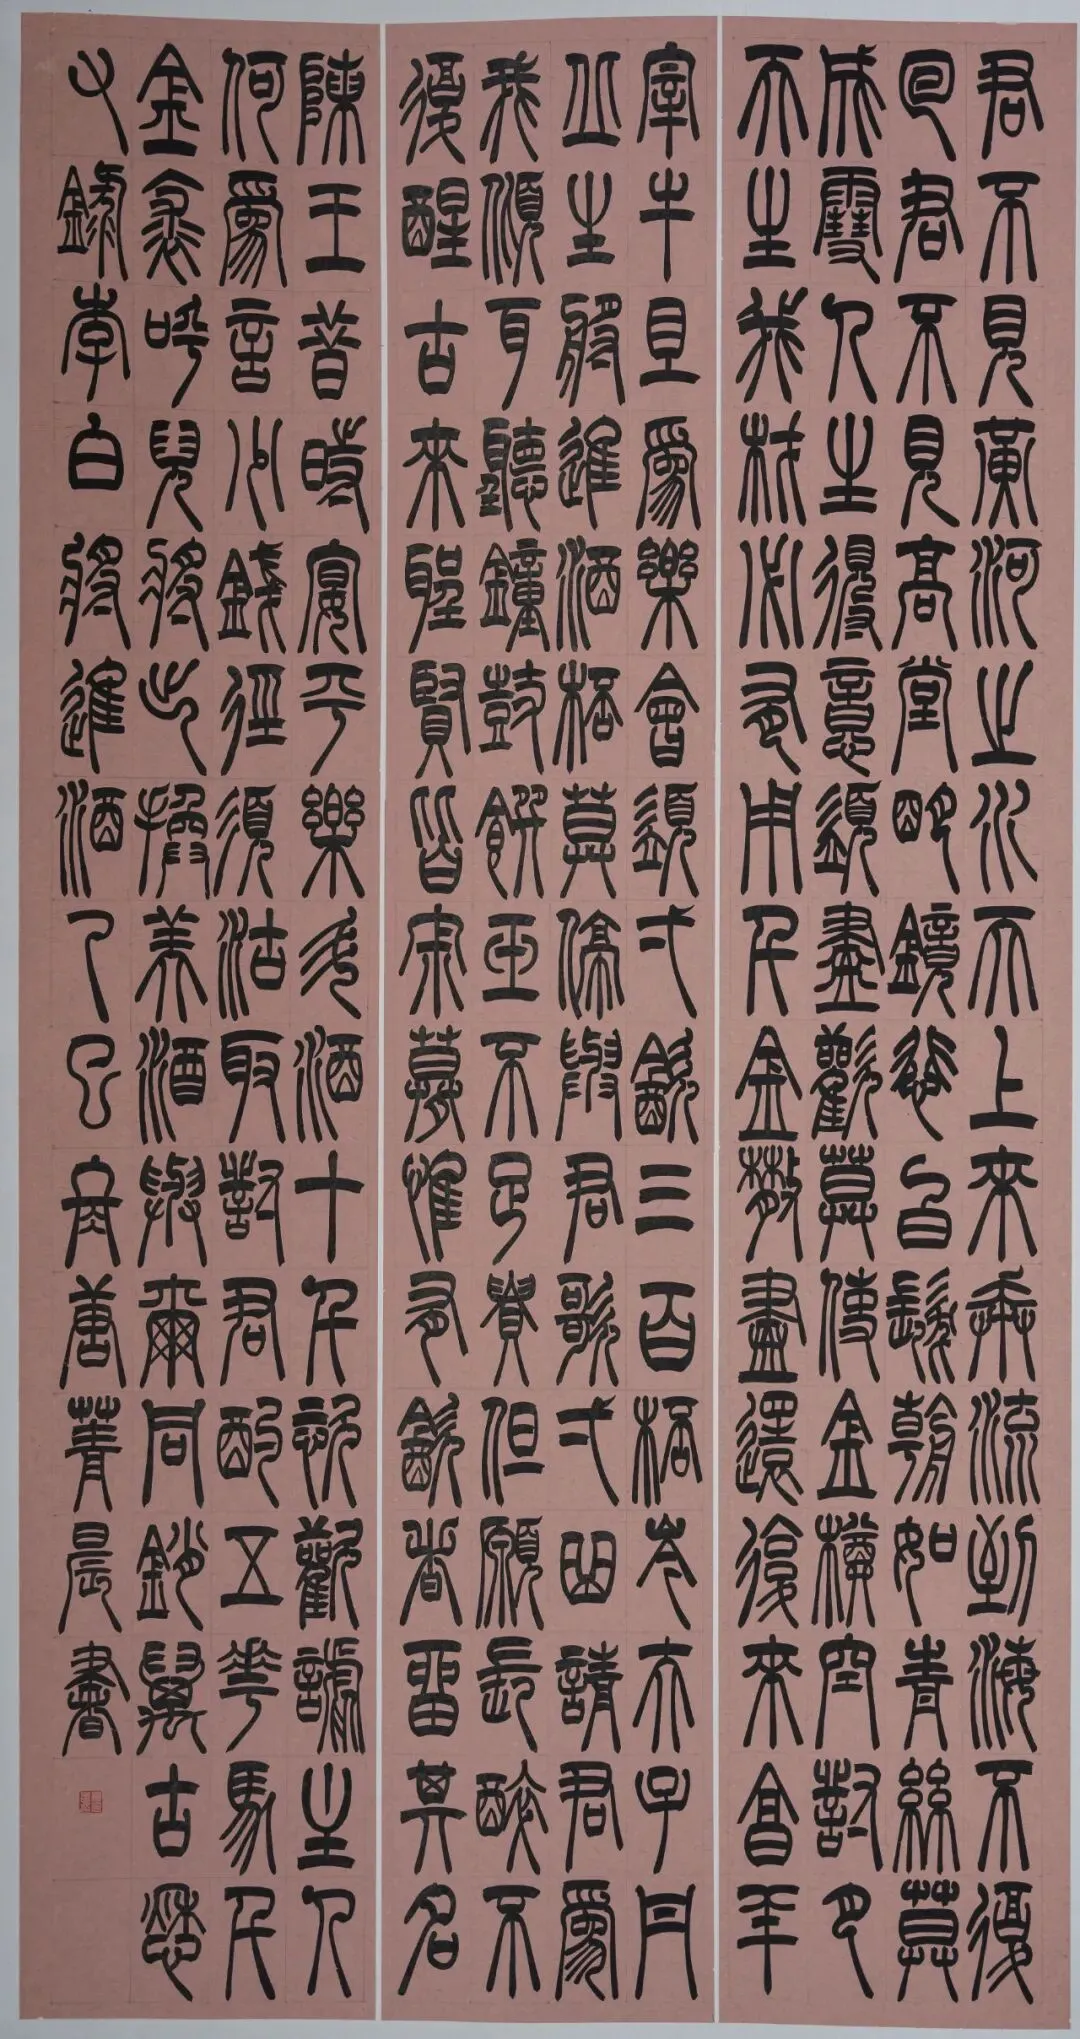 君不見黃河之水天上來奔流到海不復
回君不見高堂明鏡悲白髮朝如青絲莫
成雪人生得意須盡歡莫使金樽空對月
天生我材必有用千金散盡還復來烹羊
宰牛且爲樂會須弌飲三百杯岑夫子丹
丘生將進酒杯莫停與君歌弌曲請君爲
我傾耳聽鐘鼓饌玉不足貴但願長醉不
復醒古來聖賢皆寂寞惟有飲者留其名
陳王昔時宴平樂斗酒十千恣歡謔主人
何爲言少錢徑須沽取對君酌五花馬千
金裘呼兒將出換美酒與爾同銷萬古愁
又錄李白將進酒乙巳唐菁晨書